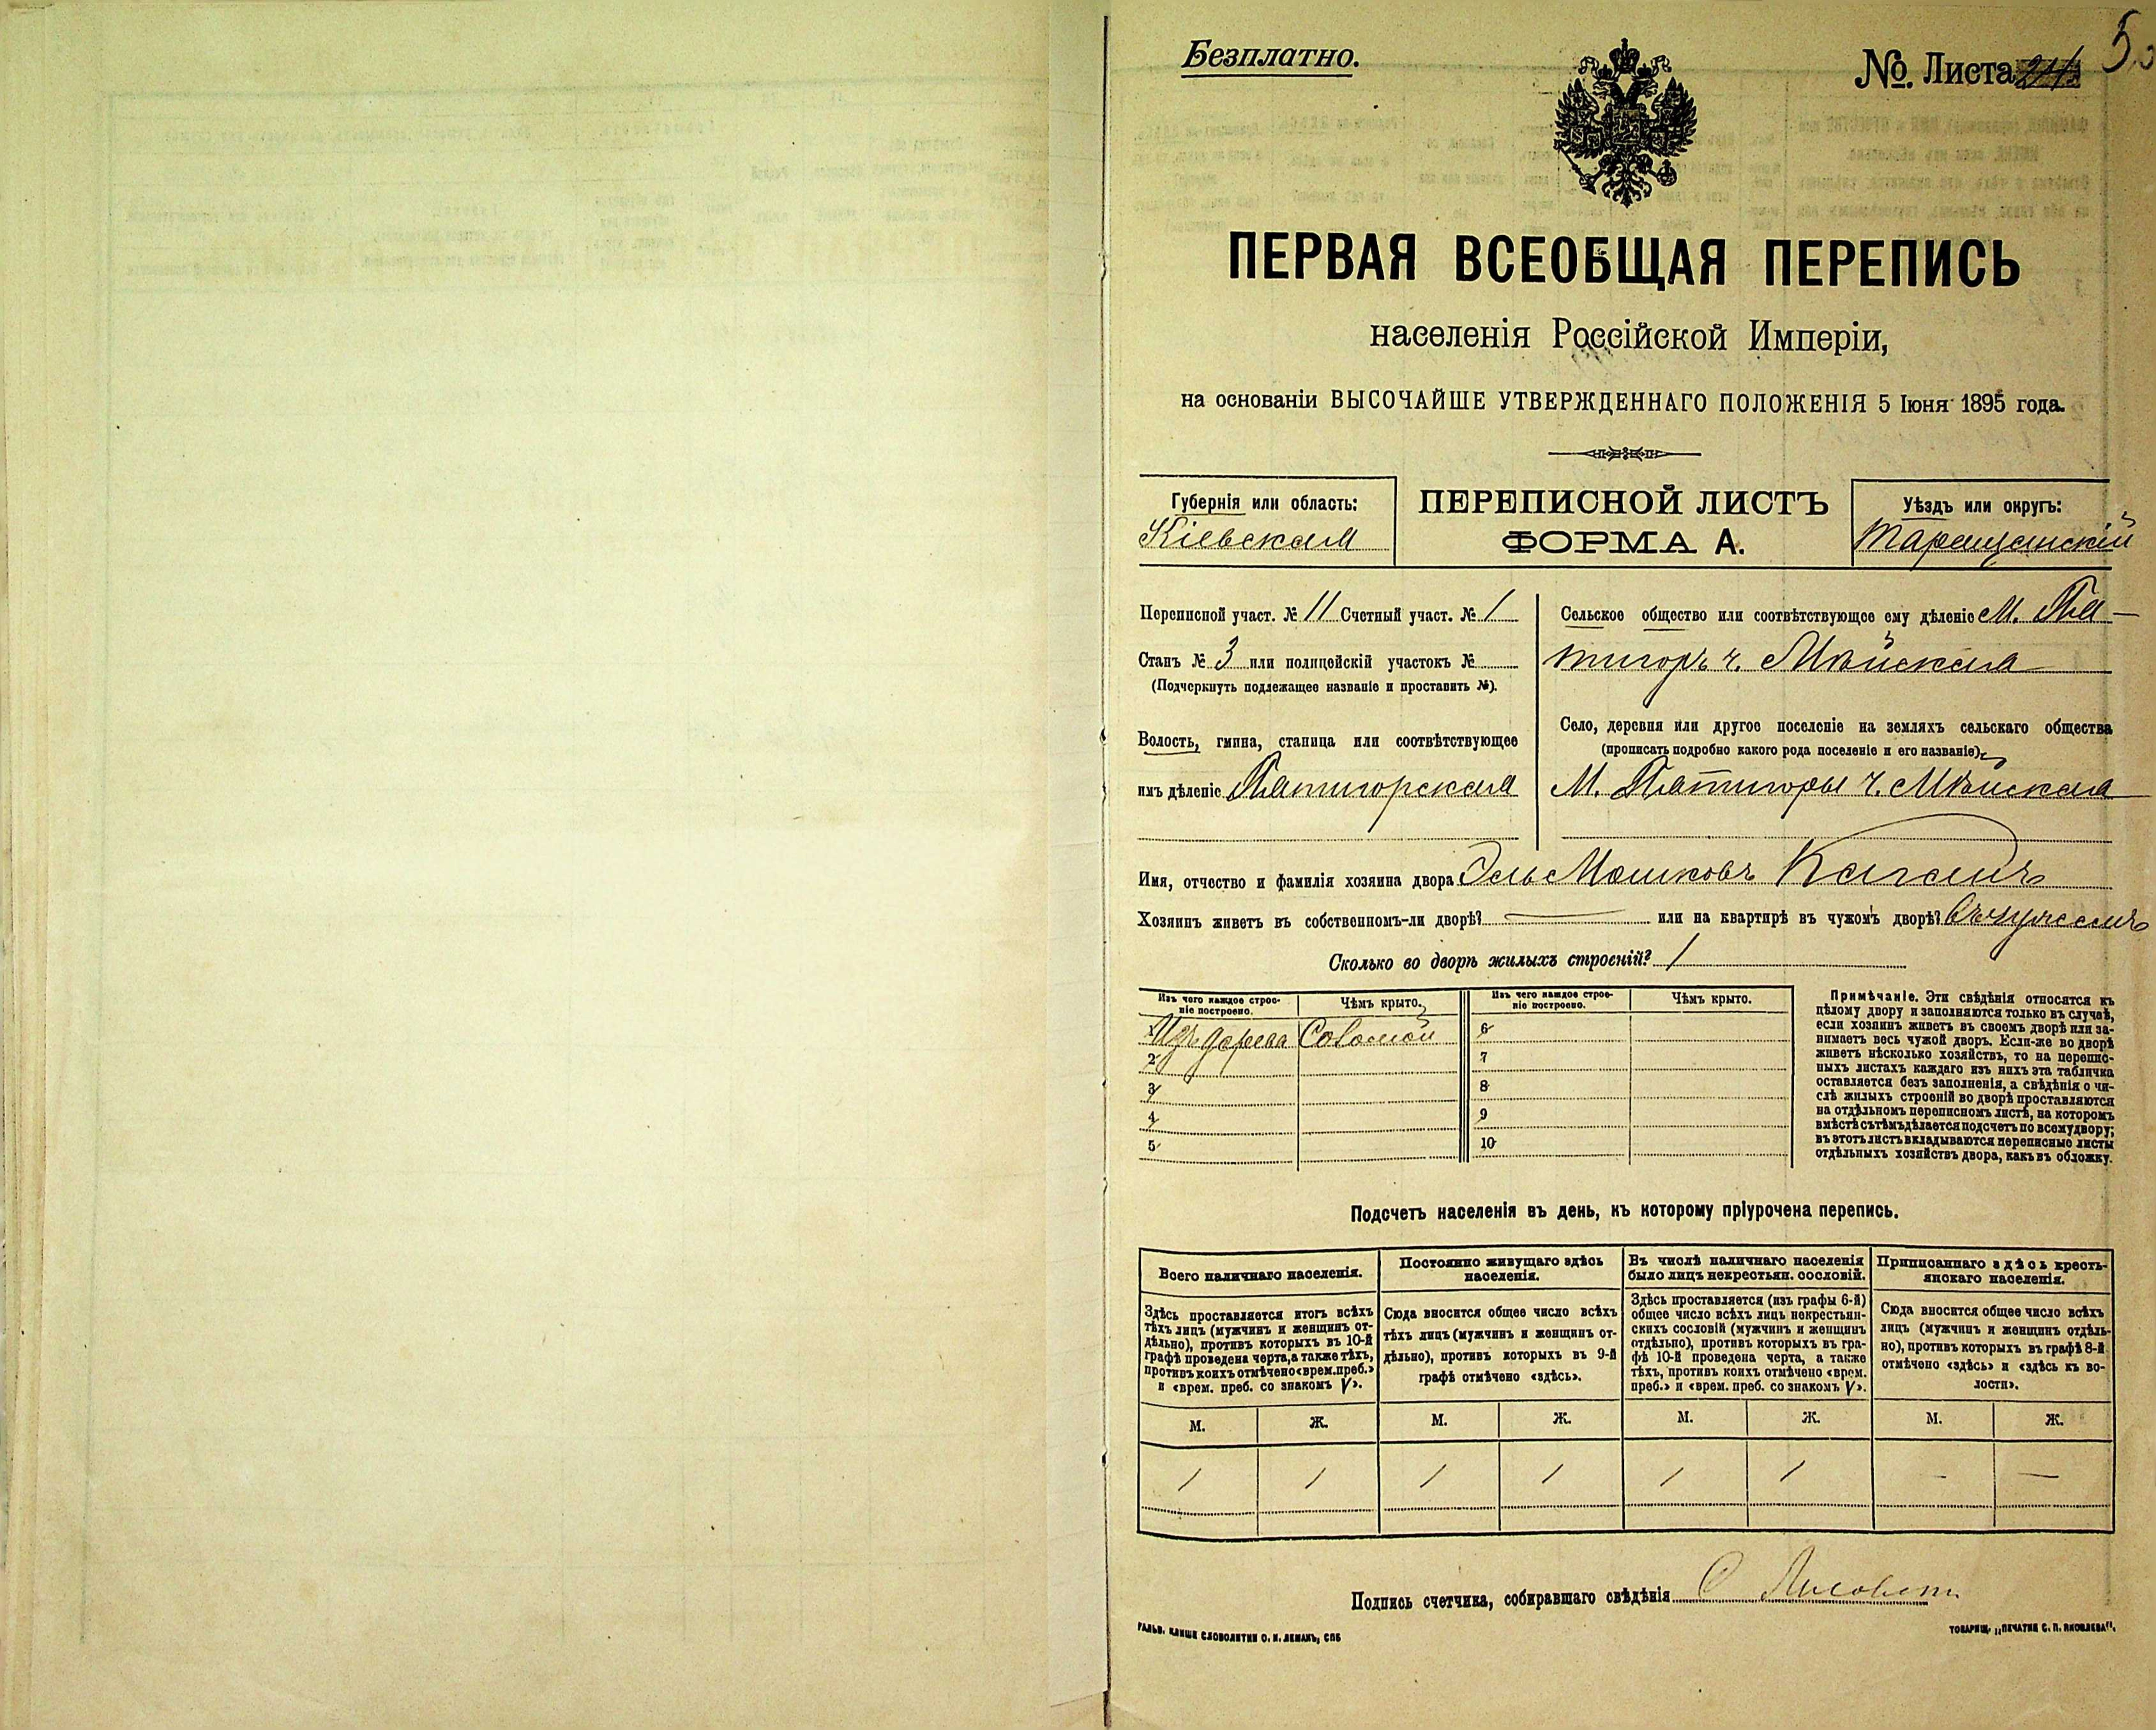 Безплатно.
№ Листа
ПЕРВАЯ ВСЕОБЩАЯ ПЕРЕПИСЬ
населенія Россійской Имперіи,
на основаніи ВЫСОЧАЙШЕ УТВЕРЖДЕННАГО ПОЛОЖЕНІЯ 5 Іюня 1895 года.
Губернія или область:
Кіевская
ПЕРЕПИСНОЙ ЛИСТЪ
ФОРМА А.
Уѣздъ или округъ:
Таращанскій
Переписной участ. № 11 Счетный участ. № 1
Станъ № 3 или полицейскій участокъ №
(Подчеркнуть подлежащее названіе и проставить №).
Волость, гмина, станица или соотвѣтствующее
имъ дѣленіе Пятигорская
Сельское общество или соотвѣтствующее ему дѣленіе М. Пя-
тигоръ ч.
Село, деревня или другое поселеніе на земляхъ сельскаго общества
(прописать подробно какого рода поселеніе и его названіе)
М. Пятигоры ч.
Имя, отчество и фамилія хозяина двора Мошковъ Каганъ
Хозяинъ живетъ въ собственномъ-ли дворѣ? — или на квартирѣ въ чужомъ дворѣ? въ чужомъ
Сколько во дворѣ жилыхъ строеній? 1
Изъ чего каждое строе-
ніе построено.
Чѣмъ крыто.
Изъ чего каждое строе-
ніе построено.
Чѣмъ крыто.
1 Изъ дерева Соломой
2
3
4
5
6
7
8
9
10
Примѣчаніе. Эти свѣдѣнія относятся къ
цѣлому двору и заполняются только въ случаѣ,
если хозяинъ живетъ въ своемъ дворѣ или за-
нимаетъ весь чужой дворъ. Если-же во дворѣ
живетъ нѣсколько хозяйствъ, то на перепис-
ныхъ листахъ каждаго изъ нихъ эта табличка
оставляется безъ заполненія, а свѣдѣнія о чи-
слѣ жилыхъ строеній во дворѣ проставляются
на отдѣльномъ переписномъ листѣ, на которомъ
вмѣстѣ съ тѣмъ дѣлается подсчетъ по всему двору;
въ этотъ листъ вкладываются переписные листы
отдѣльныхъ хозяйствъ двора, какъ въ обложку.
Подсчетъ населенія въ день, къ которому пріурочена перепись.
Всего наличнаго населенія.
Здѣсь проставляется итогъ всѣхъ
тѣхъ лицъ (мужчинъ и женщинъ от-
дѣльно), противъ которыхъ въ 10-й
графѣ проведена черта, а также тѣхъ,
противъ коихъ отмѣчено «врем. преб.»
и «врем. преб. со знакомъ V».
Постоянно живущаго здѣсь
населенія.
Сюда вносится общее число всѣхъ
тѣхъ лицъ (мужчинъ и женщинъ от-
дѣльно), противъ которыхъ въ 9-й
графѣ отмѣчено «здѣсь».
Въ числѣ наличнаго населенія
было лицъ некрестьян. сословій.
Здѣсь проставляется (изъ графы 6-й)
общее число всѣхъ лицъ некрестьян-
скихъ сословій (мужчинъ и женщинъ
отдѣльно), противъ которыхъ въ гра-
фѣ 10-й проведена черта, а также
тѣхъ, противъ коихъ отмѣчено «врем.
преб.» и «врем. преб. со знакомъ V».
Приписаннаго здѣсь кресть-
янскаго населенія.
Сюда вносится общее число всѣхъ
лицъ (мужчинъ и женщинъ отдѣль-
но), противъ которыхъ въ графѣ 8-й
отмѣчено «здѣсь» и «здѣсь къ во-
лости».
М. Ж. М. Ж. М. Ж. М. Ж.
1 1 1 1 1 1 — —
Подпись счетчика, собиравшаго свѣдѣнія
ГАЛЬВ. КЛИШЕ СЛОВОЛИТНИ О. И. ЛЕМАНЪ, СПБ
ТОВАРИЩ. „ПЕЧАТНЯ С. П. ЯКОВЛЕВА“.